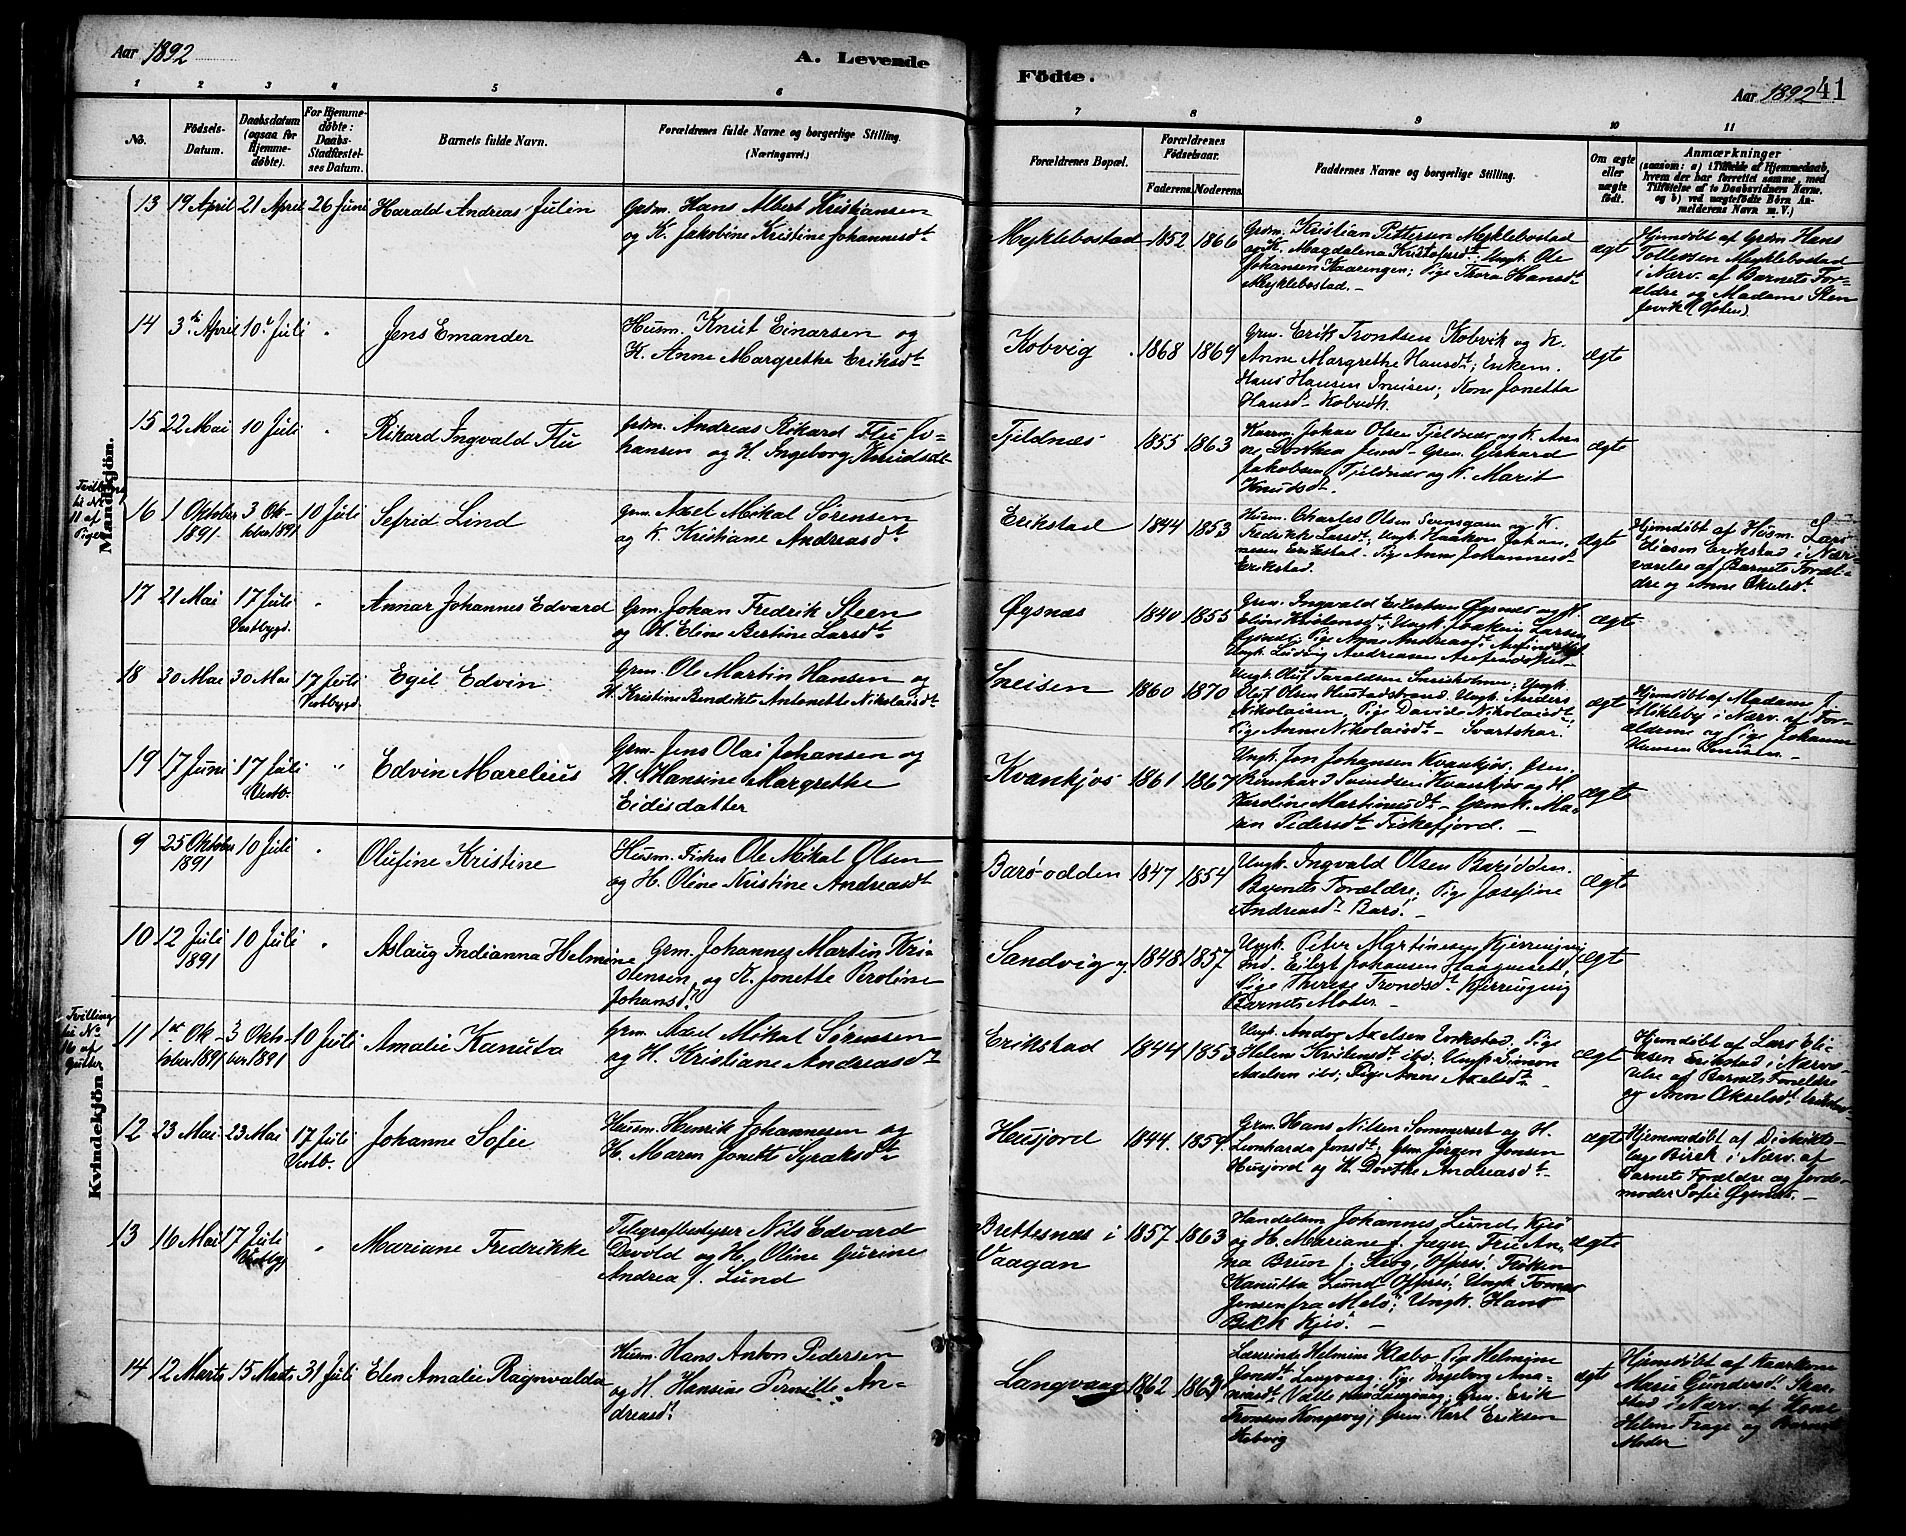 Aar 1892
A. Levende
Födte.
Aar 1892 41
1 2 3 4 5 6
7 8 9 10 11
No.
Födsels-
Datum.
Daabsdatum
(ogsaa for
Hjemme-
döbte).
For Hjemme-
döbte:
Daabs-
Stadfæstel-
ses Datum.
Barnets fulde Navn.
Forældrenes fulde Navne og borgerlige Stilling.
(Næringsvei.)
Forældrenes Bopæl.
Forældrenes
Födselsaar.
Faderens. Moderens.
Faddernes Navne og borgerlige Stilling.
Om ægte
eller
uægte
födt.
Anmærkninger
(saasom: a) i Tilfælde af Hjemmedaab,
hvem der har forrettet samme, med
Tilföielse af to Daabsvidners Navne,
og b) ved uægtefödte Börn An-
melderens Navn m. V.)
Mandskjön.
13 19 April 21 April 26 Juni Harald Andreas Julin
Grdm. Hans Albert Kristiansen
og K. Jakobine Kristine Johannesdt
Myklebostad 1852 1866
Grdm. Kristian Pettersen Myklebostad
og K. Magdalena Kristofersdt; Ungk. Ole
Johansen Kaarengen; Pige Thora Hansdt
Myklebostad.-
ægte
Hjemdøbt af Grdm Hans
Tollevsen Myklebostad
i Nærv. af Barnets For-
ældre og Madame Sten
14 3die April 10de Juli " Jens Emander
Husm. Knut Einarsen og
K. Anne Margrethe Eriksdt
Kobvig 1868 1869
Grm. Erik Trondsen Kobvik og K.
Anne Margrethe Hansdt; Enkem.
Hans Hansen Sneisen; Kone Jonetta
Hansdt Kobvik.
ægte
15 22 Mai 10 Juli " Rikard Ingvald Flu
Grdm. Andreas Rikard Flu Jo-
hansen og H. Ingeborg Knudsdt
Tjeldnæs 1855 1863
Johan Olsen Tjeldnæs og K. An-
ne Dorthea Jensdt Grm. Gerhard
Jakobsen Tjeldnæs og K. Marit
Knudsdt.
ægte
Tvilling
til No
11 af
Piger
16 1 Oktober 1891. 3 Ok-
tober 1891 10 Juli Sefrid Lind
Grm. Axel Mikal Sørensen
og K. Kristiane Andreasdt
Erikstad 1844 1853
Husm. Charles Olsen Svensgam og K.
Fredrikke Larsdt; Ungk. Haakon Johan-
nesen Erikstad. Pige Anne Johannesdt
Erikstad.
ægte
Hjemdøbt af Husm. Lars
Eliasen Erikstad i Nær-
værelse af Barnets Foræl-
dre og Anne Akselsdt.
17 21 Mai 17 Juli
Vestbygd. " Annar Johannes Edvard
Grm. Johan Fredrik Steen
og H. Eline Bertine Larsdt
Øgsnæs 1840 1855
Grm. Ingvald Øgsnæs og H.
Eline Kristensdt; Ungk. Joakim Larsen
Øgsnes; Pige Anne Andreasdt
Ungk. Ludvig Andreasen
ægte
18 30 Mai 30 Mai 17 Juli
Vestbygd. Egil Edvin
Grm. Ole Martin Hansen og
H. Kristine Bendikte Antonette Nikolaisdt
Sneisen 1860 1870
Ungk. Oluf Taraldsen Ungk.
Oluf Olsen Ungk. Anders
Nikolaisen, Pige Davide Nikolaisdt
Pige Anne Nikolaisdt Svartskar.
ægte
Hjemdøbt af Madam J.
Mikleby i Nærv. af For-
ældrene og Pige Johanne
Hansen
19 17 Juni 17 Juli
Vestb. " Edvin Marelius
Grm. Jens Olai Johansen og
H. Hansine Margrethe
Eidisdatter
Kvankjos 1861 1867
Ungk. Jon Johansen Kvankjos, Grm.
Bernhard Kvankjos og H.
Karoline Martinusdt Ma-
ren Pedersdt Fiskefjord.-
ægte
Kvindekjön.
9 25 Oktober
1891 10 Juli " Olufine Kristine
Husm. Fisker Ole Mikal Olsen
og H. Oline Kristine Andreasdt
Barö odden 1847 1854
Ungk. Ingvald Olsen Barödden.
Barnets Forældre; Pige Josefine
Andreasdt Barö.-
ægte
10 12 Juli
1891 10 Juli " Aslaug Indianna Helmine
Grm. Johannes Martin Kri-
stensen og K. Jonette Peroline
Johansdt
Sandvig 1848 1857
Ungk. Peter Martinesen Kjerringvig
Ind. Eilert Johansen
Pige Therese Trondsdt Kjerringvig
Barnets Moder-
ægte
Tvilling
til No
16 af
Gutter
11 1ste Ok-
tober 1891 3 Okto-
ber 1891 10 Juli Amalie Kanuta
Grm. Axel Mikal Sørensen
og H. Kristiane Andreasdt
Erikstad 1844 1853
Ungk. Andor Axelsen Erikstad. Pige
Helene Kristensdt ibd; Ungk Simon
Axelsen ibd; Pige Anne Axelsdt
ægte
Hjemdøbt af Lars Eli-
asen Erikstad i Nærvæ-
relse af Barnets Forældre
og Anne Akselsdt.
12 23 Mai 23 Mai 17 Juli
Vestb. Johanne Sofie
Husm. Henrik Johannesen og
H. Maren Jonette Syraksdt
Husjord 1844. 1854.
Grm. Hans Nilsen Sommerset og H.
Leonharda Jonsdt; Grm Jørgen Jensen
Husjord og H. Dorthe Andreasdt-
ægte
Hjemmedøbt af Distrikts-
læge Birck i Nærv. af
Barnets Forældre og Jorde-
moder Sofie Øgsnæs.-
13 16 Mai 17 Juli
Vestbygd " Mariane Fredrikke
Telegrafbestyrer Nils Edvard
Devold og H. Oline Gurine
Andrea f. Lund
Brettesnæs i
Vaagan 1857 1863
Handelsm. Johannes Lund, Kjeö
og H. Mariane f. Jæger, Fru An-
na Brun f. Krog, Offersö; Frøken
Kanutta Lund Offersö; Ungk Tomas
Jensen fra Melö; Ungk. Hans
Bekk Kjeö.-
ægte
14 12 Marts 15 Marts 31 Juli Elen Amalie Ragnvalda
Husm. Hans Anton Pedersen
og H. Hansine Pernille An-
dreasdt
Langvaag 1862 1863
Lærerinde Helmine Klæbo Pige Helmine
Jonsdt Langvaag. Pige Ingeborg
Langvaag; Grm. Erik
Tronsen Kongsvig; Grm. Karl Eriksen
Kobvig
ægte
Hjemdøbt af
Marie Gundersdt Skar-
stad i Nærv. af Kone
Helene Frage og Barnets
Moder